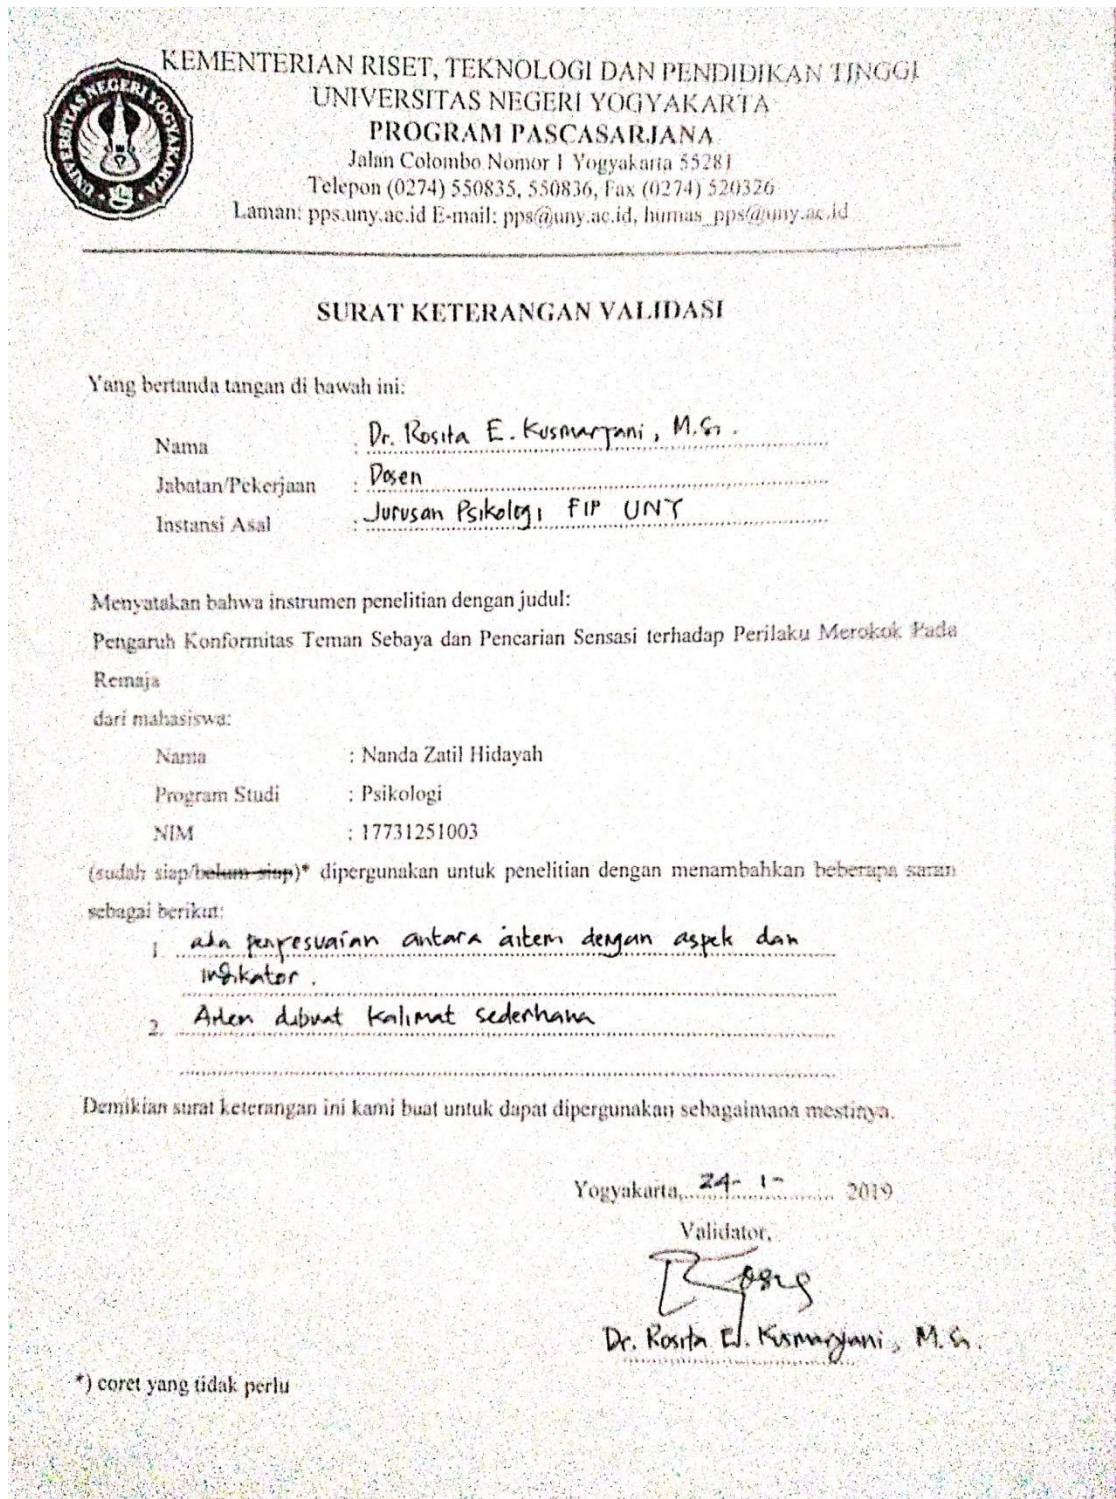 KEMENTERIAN RISET, TEKNOLOGI DAN PENDIDIKAN TINGGI
UNIVERSITAS NEGERI YOGYAKARTA
PROGRAM PASCASARJANA
Jalan Colombo Nomor 1 Yogyakarta 55281
Telepon (0274) 550835, 550836, Fax (0274) 520326
Laman: pps.uny.ac.id E-mail: pps@uny.ac.id, humas_pps@uny.ac.id
UNIVERSITAS NEGERI YOGYAKARTA
SURAT KETERANGAN VALIDASI
Yang bertanda tangan di bawah ini:
Nama : Dr. Rosita E. Kusmaryani, M.Si.
Jabatan/Pekerjaan : Dosen
Instansi Asal : Jurusan Psikologi FIP UNY
Menyatakan bahwa instrumen penelitian dengan judul:
Pengaruh Konformitas Teman Sebaya dan Pencarian Sensasi terhadap Perilaku Merokok Pada
Remaja
dari mahasiswa:
Nama : Nanda Zatil Hidayah
Program Studi : Psikologi
NIM : 17731251003
(sudah siap/belum siap)* dipergunakan untuk penelitian dengan menambahkan beberapa saran
sebagai berikut:
1. ada penyesuaian antara aitem dengan aspek dan
indikator.
2. Aitem dibuat kalimat sederhana
Demikian surat keterangan ini kami buat untuk dapat dipergunakan sebagaimana mestinya.
Yogyakarta, 24-1- 2019
Validator,
Dr. Rosita E. Kusmaryani, M.Si.
*) coret yang tidak perlu